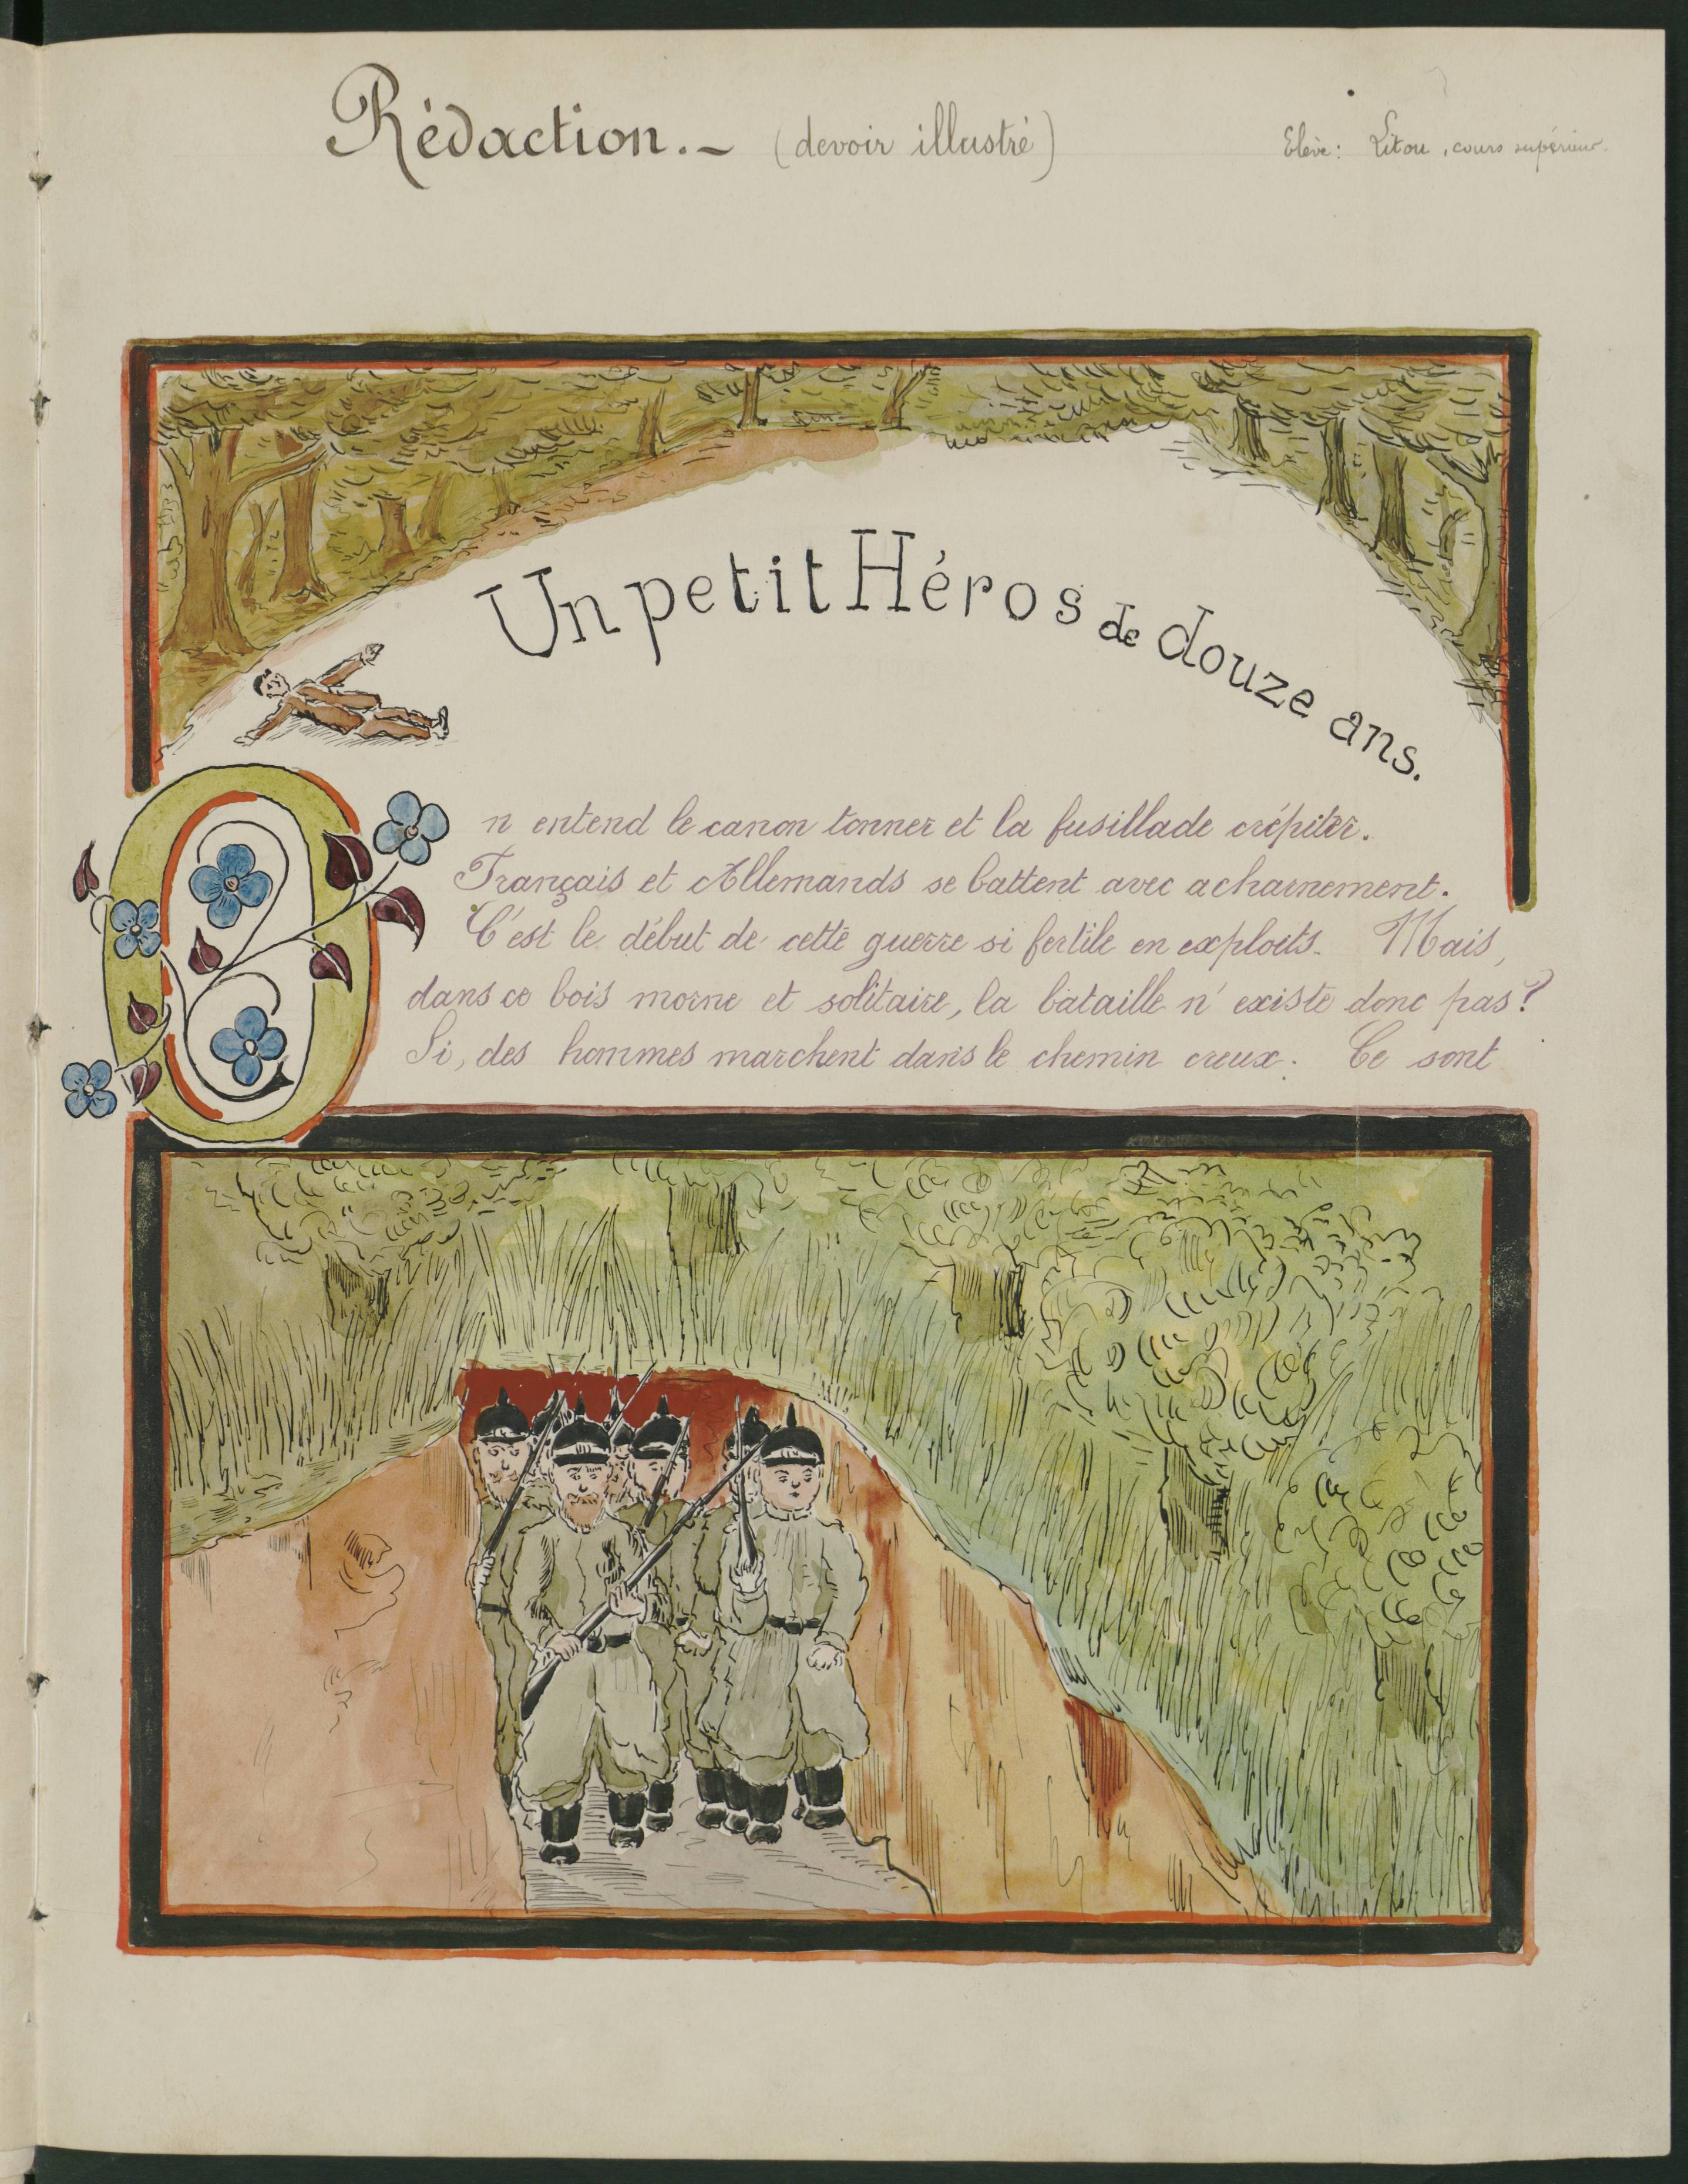 Rédaction. - (devoir illustré)
Elève: Litou, cours supérieur.
Un petit Héros de douze ans.
On entend le canon tonner et la fusillade crépiter.
Français et Allemands se battent avec acharnement.
C'est le début de cette guerre si fertile en exploits. Mais,
dans ce bois morne et solitaire, la bataille n'existe donc pas?
Si, des hommes marchent dans le chemin creux. Ce sont